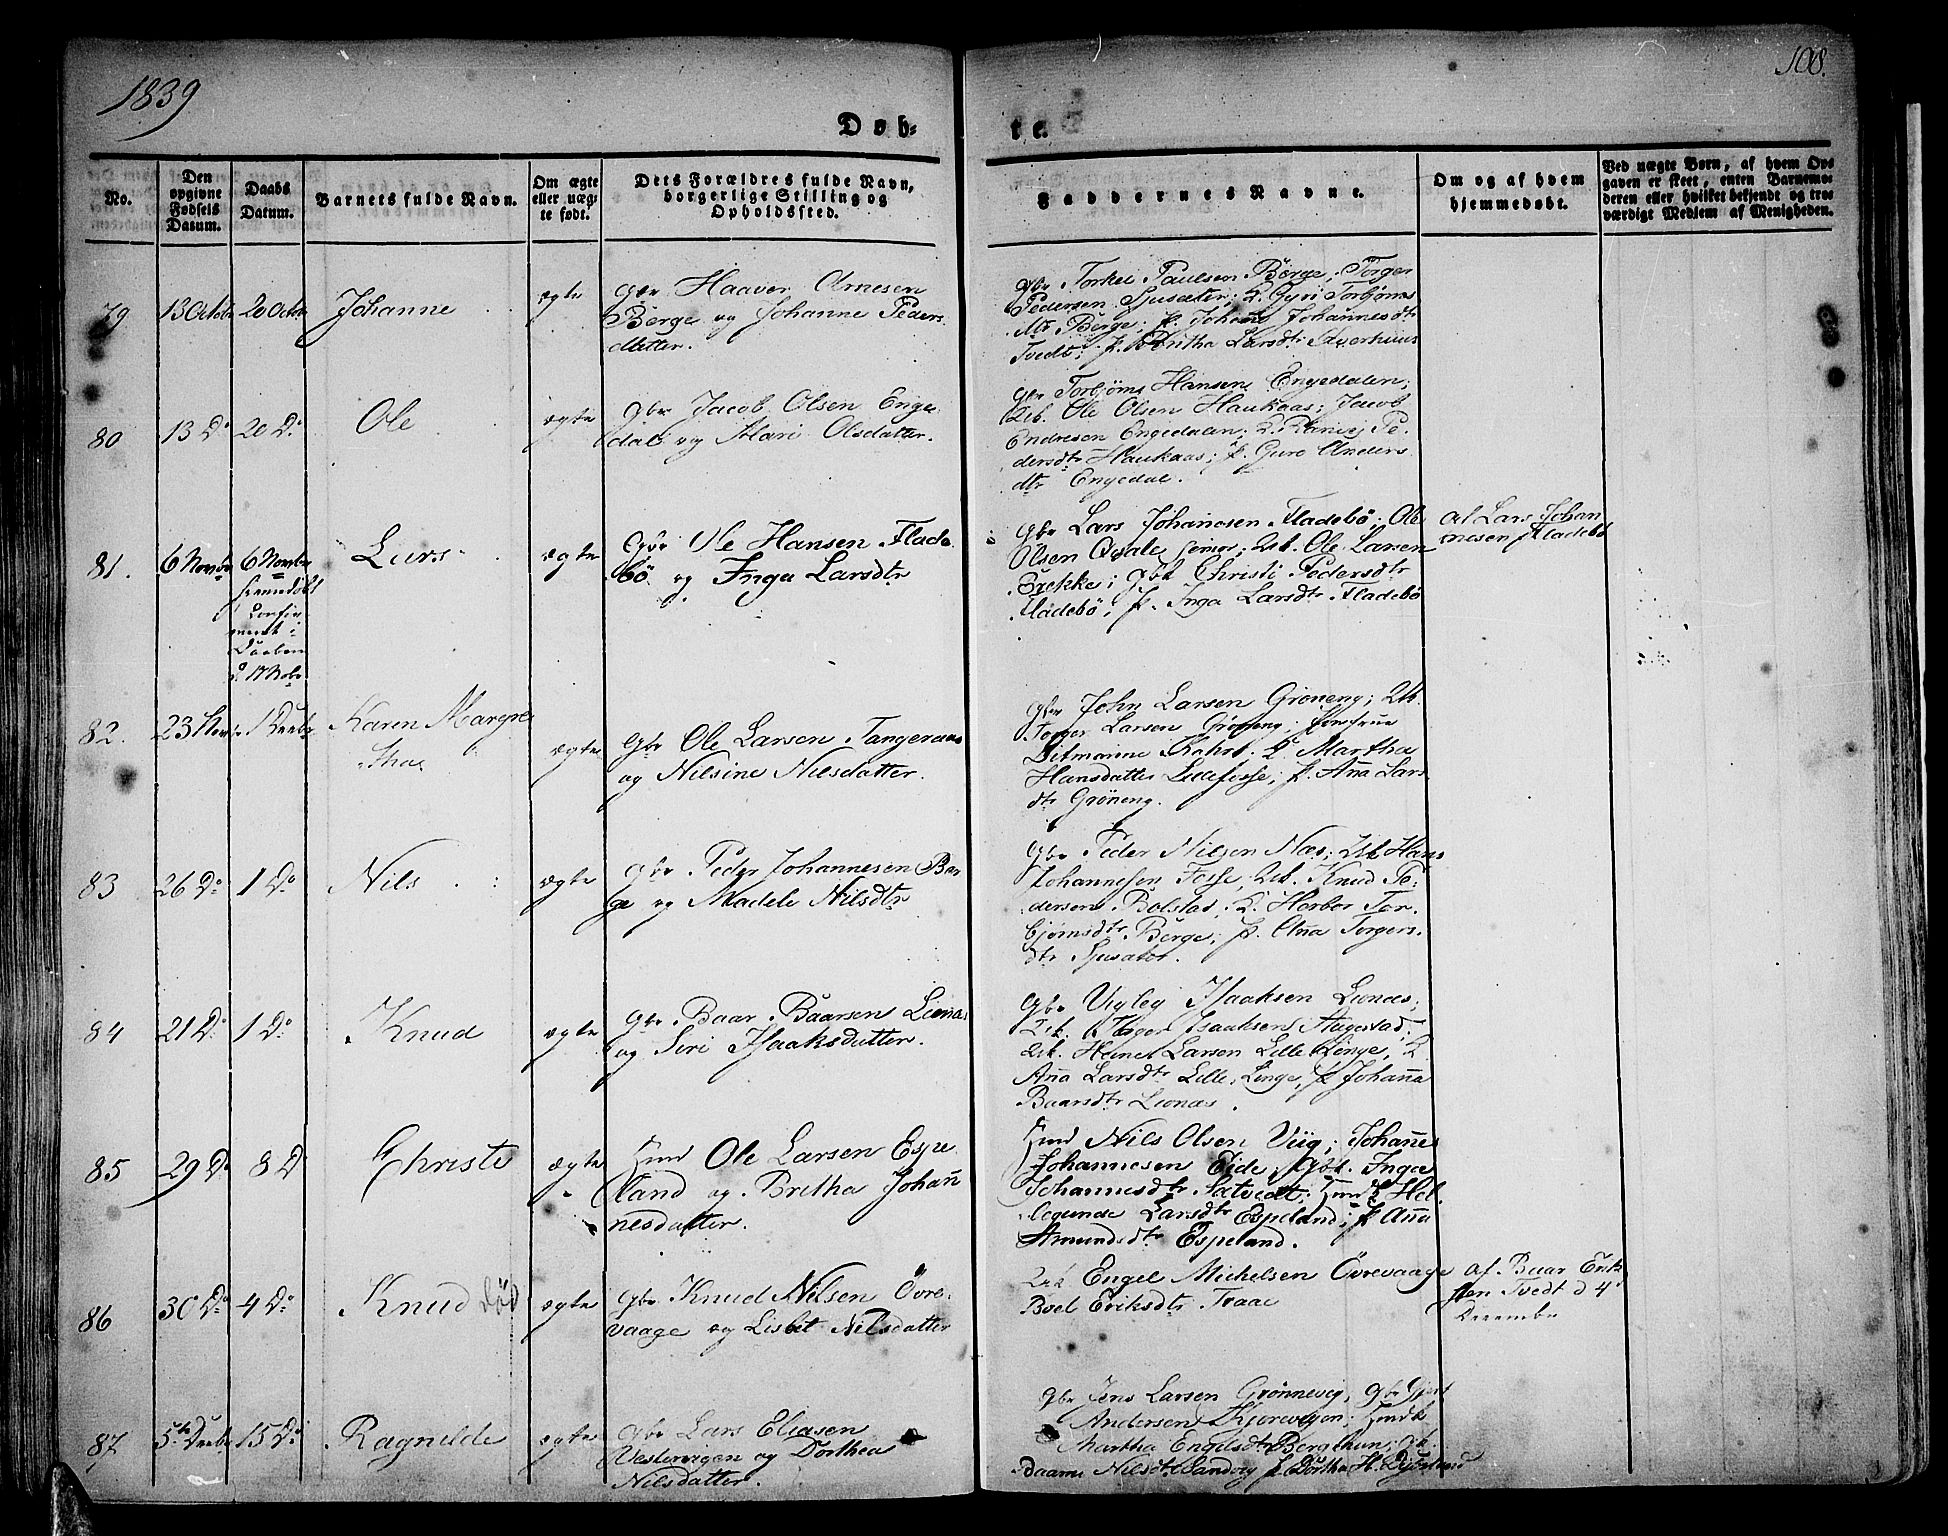 1839
108.
Døb-
te.
No.
Den
opgivne
Fødsels
Datum.
Daabs
Datum.
Barnets fulde Navn.
Om ægte
eller uæg-
te født.
Dets Forældres fulde Navn,
borgerlige Stilling og
Opholdssted.
Faddernes Navne.
Om og af hvem
hjemmedøbt.
Ved uægte Børn, af hvem Op-
gaven er skeet, enten Barnemo-
deren eller hvilket bekjendt og tro-
værdigt Medlem af Menigheden.
79
13 Octobr
20 Octbr
Johanne
ægte
Gbr Haaver Arnesen
Berge og Johanne Peders
datter.
Gbr Torkel Paulsen Berge; Torger
Pedersen Sjusæter; K. Gyri Torbjøms
Berge; p. Johane Johannesdtr
Tvedt; p. Britha Larsdtr
80
13 Do
20 Do
Ole
ægte
Gbr Jacob Olsen Enge
dal og Mari Olsdatter.
Gbr Torbjøms Hansen Engedalen;
Ole Olsen Haukaas; Jacob
Endresen Engedalen; K. Pe-
dersdtr Haukaas; p. Guro Anders
dtr Engedal.
81.
6 Novembr
6 Novembr
hjemmedøbt
Confir-
meret i
Daaben
d. 17 Nobr
Lars
ægte
Gbr Ole Hansen Flade
bö og Inga Larsdtr
Gbr Lars Johanesen Fladebö; Ole
Olsen Qvale; Ole Larsen
Brekke; Gbk Christi Pedersdtr
Fladebö; p. Inga Larsdtr Fladebö
af Lars Johan
nesen Fladebö
82.
23 Novbr
1 Decbr
Karen Margre
tha
ægte
Gbr Ole Larsen Tangeraas
og Nilsine Nilsdatter.
Gbr John Larsen Gröneng; Uk.
Torger Larsen Gröneng;
Ditmarine K. Martha
Hansdatter Lillefosse; p. Aña Lars
dtr Gröneng.
83
26 Do
1 Do
Nils
ægte
Gbr Peder Johannesen Ber
ge og Madele Nilsdtr
Gbr Peder Nilsen Næs; Uk Hans
Johannesen Fosse; Uk. Knud Pe-
dersen Bolstad; K. Herbor Tor-
bjørnsdtr Berge; p. Aña Torgers
dtr Sjusæter.
84
21 Do
1 Do
Knud
ægte
Gbr Baar Baarsen Lionæs
og Siri Isaaksdatter.
Gbr Vigleg Isaaksen Lionæs;
Isaaksen Augestad;
Uk. Heine Larsen Lille Linge, K.
Aña Larsdtr Lille Linge, p. Johaña
Baarsdtr Lionæs.
85
29 D.
8 D
Christi
ægte
Hmd Ole Larsen Espe
land og Britha Johañ
nesdatter.
Hmd Nils Olsen Viig; Johañes
Johannesen Eide; Gbk. Inga
Johannesdtr Sætvedt; Hel-
legunde Larsdtr Espeland; p. Aña
Amundsdtr Espeland.
86
30 Do
4 Do
Knud död
ægte
Gbr Knud Nilsen Övre-
vaage og Lisbet Nilsdatter
Engel Michelsen Övrevaage
Boel Eriksdtr Traae
af Baar Erik
sen Tvedt d 4
Decembr
87
5te Decbr
15 Do
Ragnilde
ægte
Gbr Lars Eliasen
Vestervigen og Dorthea
Nilsdatter.
Gbr Jens Larsen Grönnevig; Gbr Gjert
Andersen
Martha Engelsdtr Bergthun;
Nilsdtr Sandvig p. Dortha H.